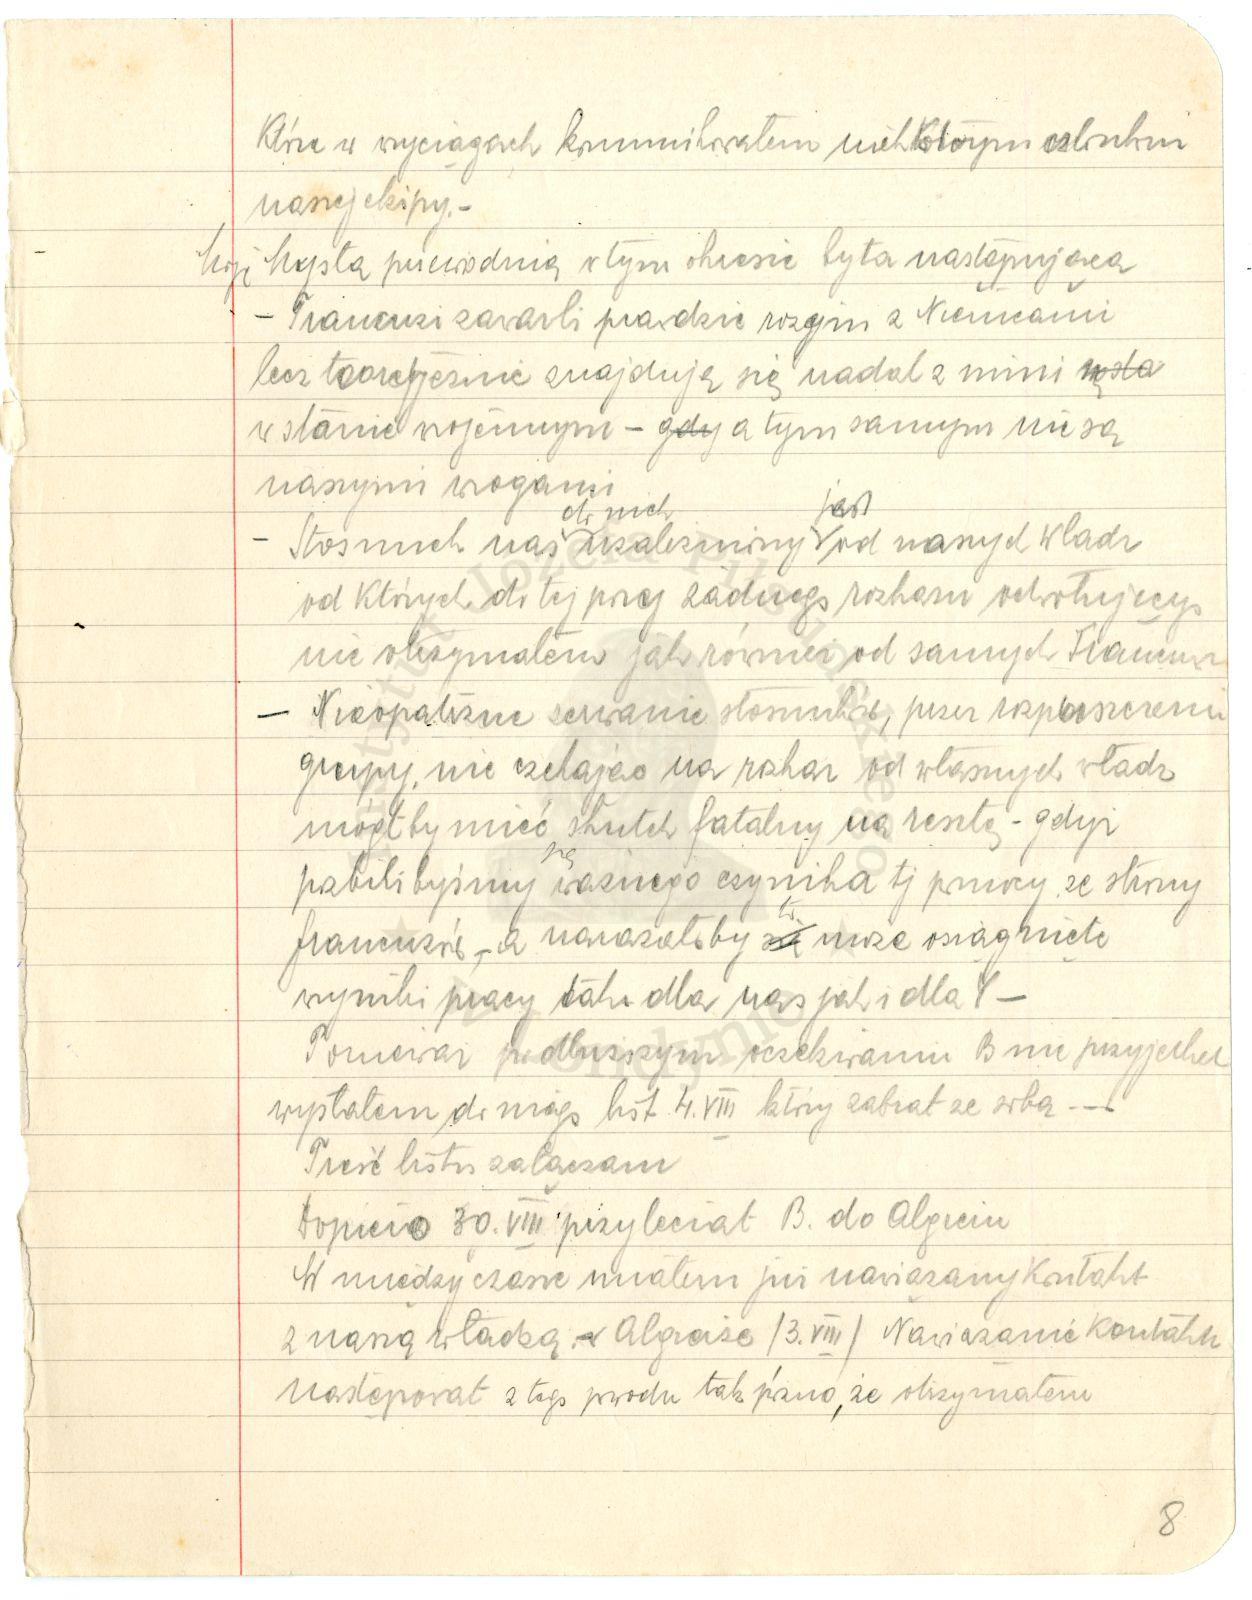 które w wyciągach komunikowałem niektórym członkom
naszej ekipy.–
Moją Myślą przewodnią w tym okresie była następująca
– Francuzi zawarli prawdzie rozejm z Niemcami
lecz teoretycznie znajdują się nadal z nimi w sta
w stanie wojennym – gdy a tym samym nie są
naszymi wrogami
– Stosunek nasz do nich uzależniony jest od naszych władz
od których do tej pory żadnego rozkazu odwołującego
nie otrzymałem jak również od samych Francuz
– Nieopatrzne zerwanie stosunków, przez rozproszenie
grupy, nie czekając na rozkaz od własnych władz
mógłby mieć skutek fatalny na resztę – gdyż
pozbilibyśmy się ważnego czynnika tj pomocy ze strony
francuzów – a narażałoby się to może osiągnięte
wyniki pracy tak dla nas jak i dla Y –
Ponieważ po dłuższym oczekiwaniu B nie przyjechał
wysłałem do niego list 4.VIII który zabrał ze sobą –
Treść listu załączam
Dopiero 30.VIII przyleciał B. do Algieru
W międzyczasie miałem już nawiązany kontakt
z naszą władzą w Algierze /3.VIII/ Nawiązanie kontaktu
następował z tego powodu tak późno, że otrzymałem
8
Instytut Józefa Piłsudskiego
w Londynie